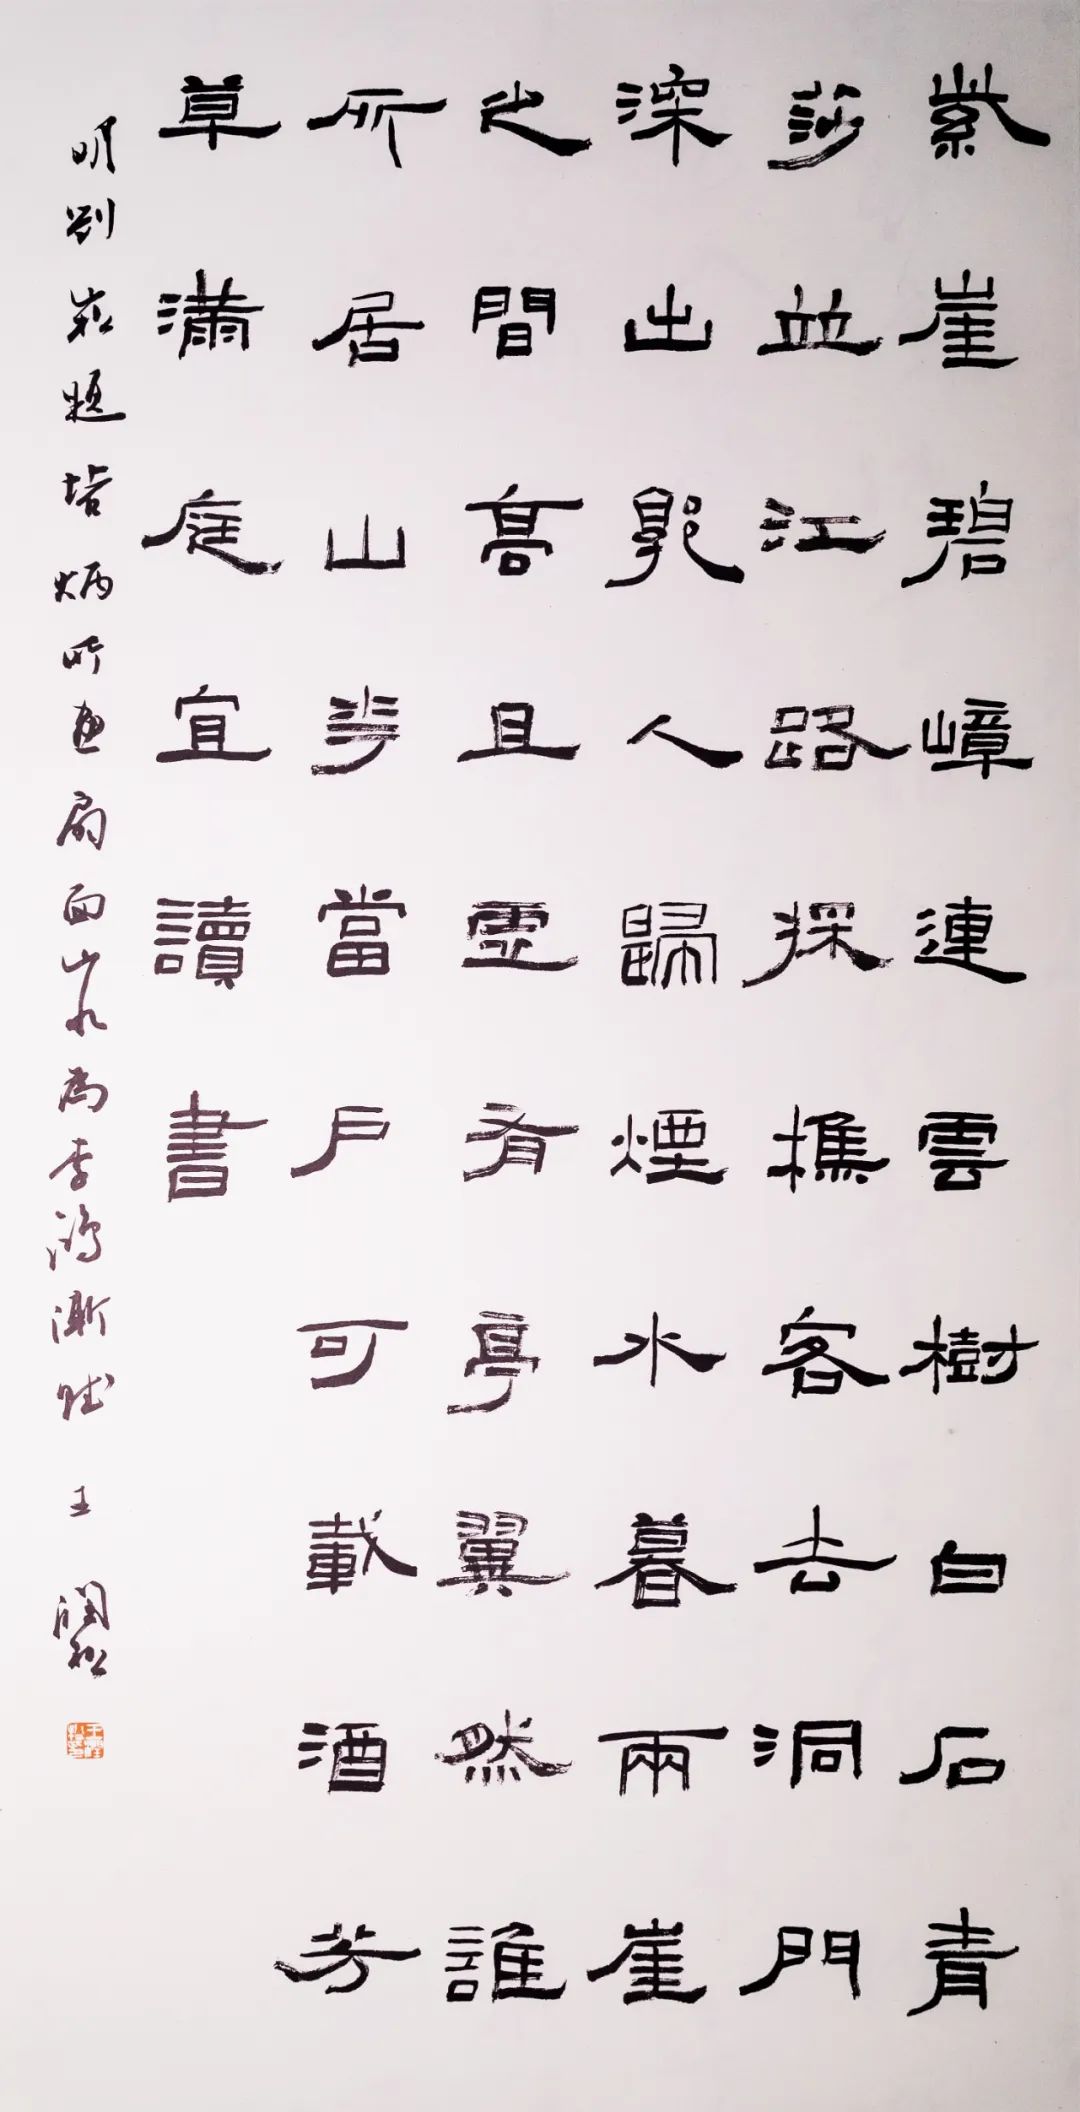 紫崖碧嶂連雲樹白石青
莎並江路採樵客去洞門
深出郭人歸煙水暮兩崖
之間高且虛有亭翼然誰
所居山步當戶可載酒芳
草滿庭宜讀書
明劉崧題塔炳所畫扇面山水為李鴻漸賦 王